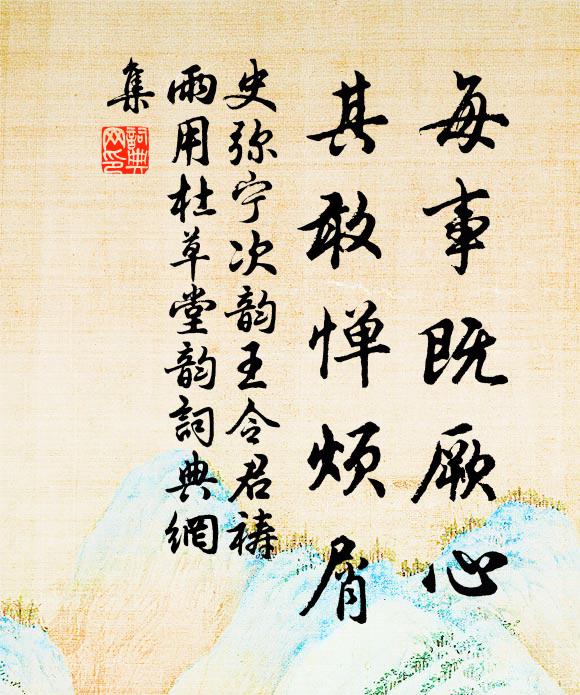 每事既厥心
其敢惮烦屑
史弥宁次韵王令君祷
雨用杜草堂韵詞典網
集
詞典
网印